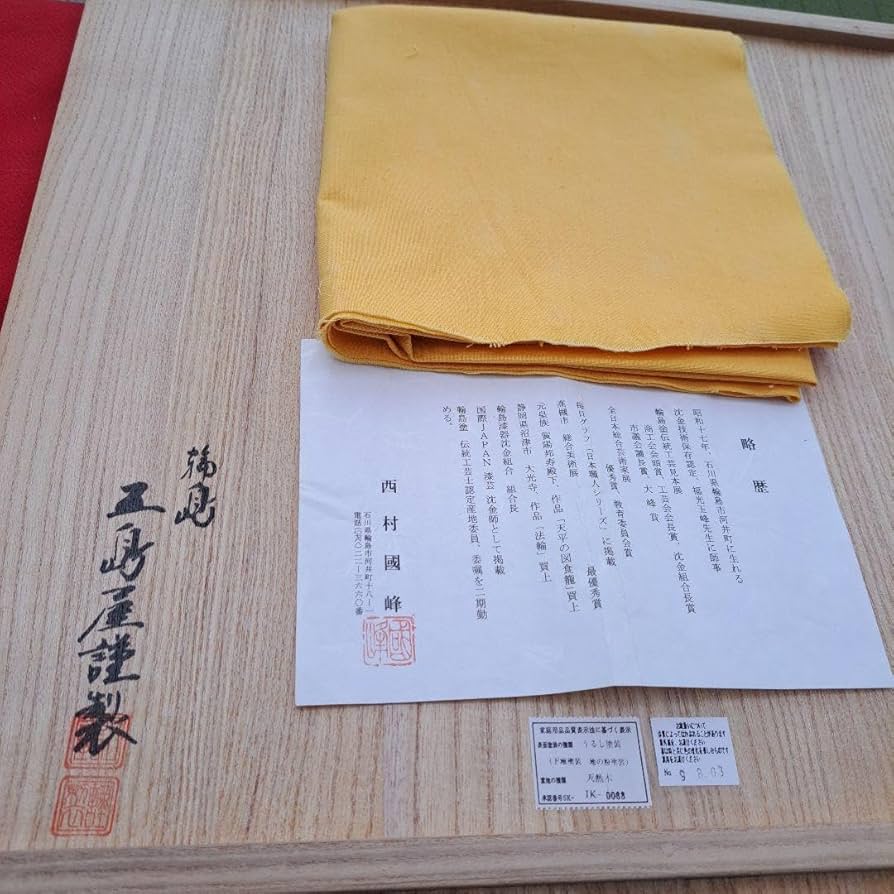 略歴
昭和十七年、石川県輪島市河井町に生れる
沈金技術保存認定、福光玉峰先生に師事
輪島塗伝統工芸見本展
商工会会頭賞、工芸会会長賞、沈金組合長賞
市議会議長賞、大峰賞
全日本総合芸術家展
優秀賞、教育委員会賞
毎日グラフ、「日本職人シリーズ」に掲載
総合美術展 最優秀賞
元皇族 殿下、作品「天平の図食籠」買上
静岡県沼津市 大光寺、作品「法輪」買上
輪島漆器沈金組合 組合長
国際JAPAN漆芸 沈金師として掲載
輪島塗 伝統工芸士認定産地委員、委嘱を二期勤
める。
西村國峰
石川県輪島市河井町十八ー
國峰
輪島
五島屋謹製
家庭用品品質表示法に基づく表示
表面塗装の種類 うるし塗装
(下地塗装 地の粉塗装)
素地の種類 天然木
承認番号SK- IK-0088
お取扱いについて
No 9 8.03